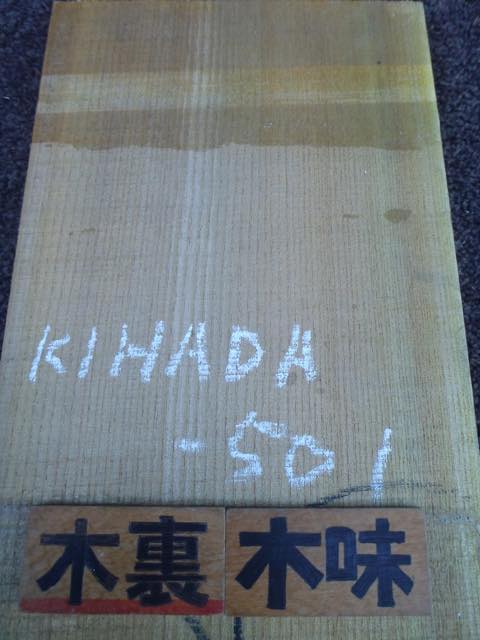 KIHADA
-501
木裏 木味